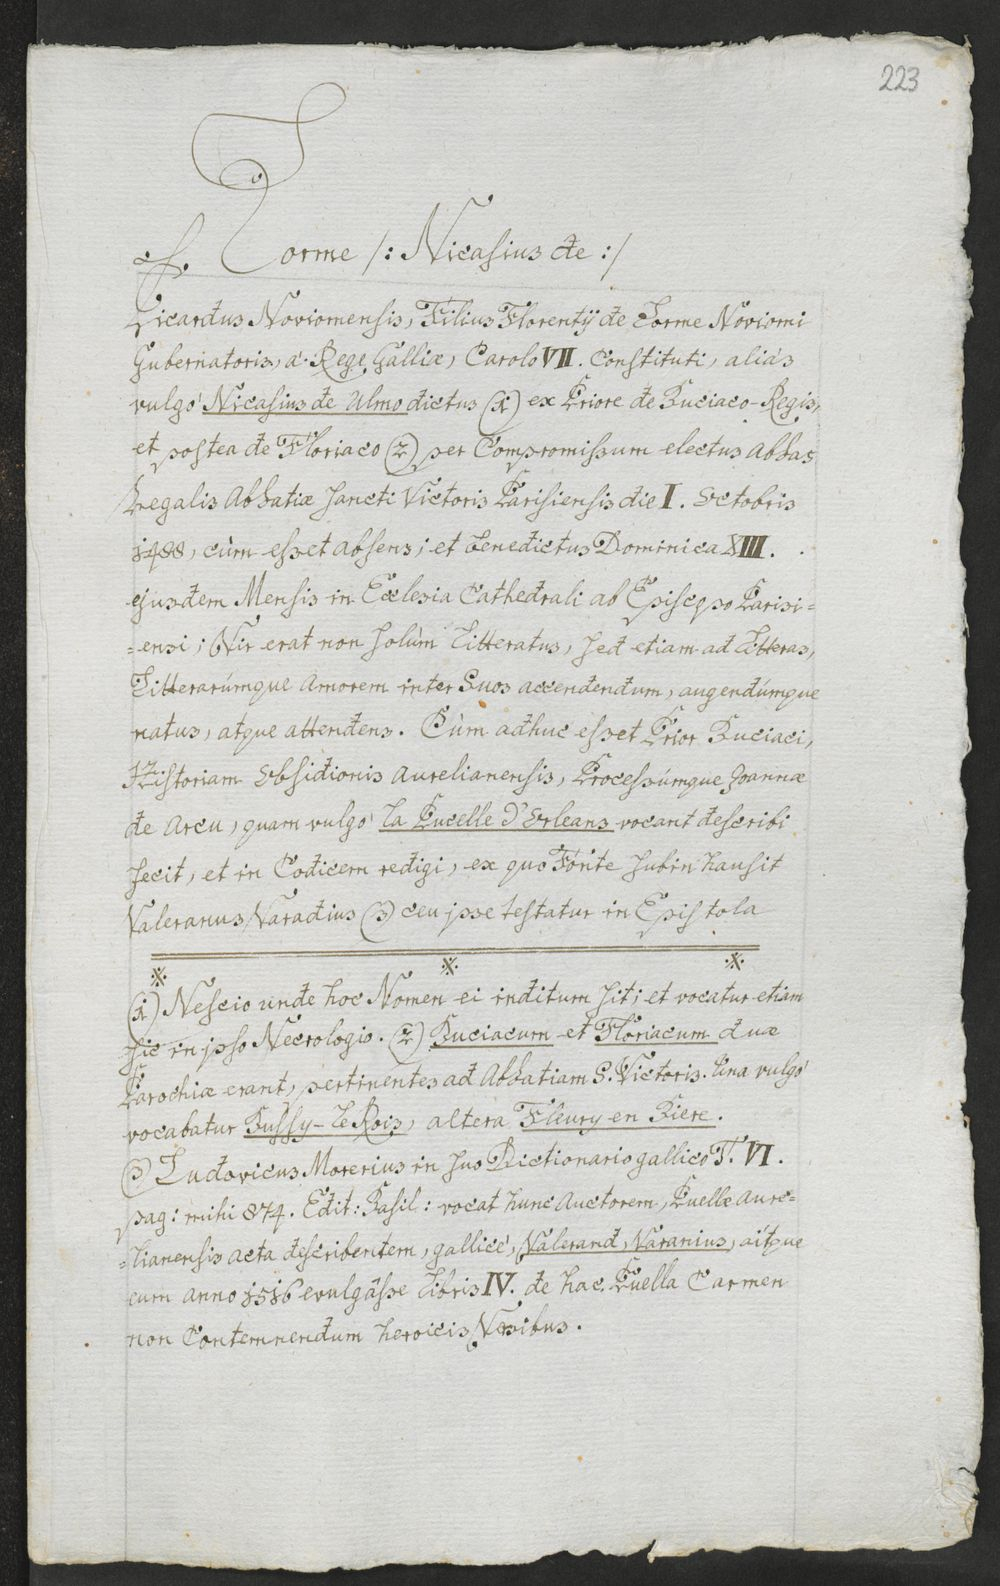 223
f. Lorme /: Nicasius de :/
Picardus Noviomensis, Filius Florentij de Lorme Noviomi
Gubernatoris, a' Rege Galliæ, Carolo VII. Constituti, aliàs
vulgò Nicasius de Ulmo dictus (1) ex Priore de Buciaco-Regis,
et postea de Floriaco (2) per Compromissum electus Abbas
Regalis Abbatiæ Sancti Victoris Parisiensis die I. Octobris
1488, cùm esset absens; et benedictus Dominica XIII.
ejusdem Mensis in Ecclesia Cathedrali ab Episcopo Parisi=
=ensi; Vir erat non solùm Litteratus, sed etiam ad Litteras,
Litterarúmque Amorem inter Suos accendendum, augendúmque
natus, atque attendens. Cùm adhuc esset Prior Buciaci,
Historiam Obsidionis Aurelianensis, Processúmque Joannæ
de Arcu, quam vulgò La Pucelle d'Orleans vocant describi
fecit, et in Codicem redigi, ex quo Fonte subin hausit
Valeranus Varadius (3) ceu ipse testatur in Epistola
(1) Nescio unde hoc Nomen ei inditum sit; et vocatur etiam
sic in ipso Necrologio. (2) Buciacum et Floriacum duæ
Parochiæ erant, pertinentes ad Abbatiam S. Victoris. Una vulgò
vocabatur Bussy-Le Rois, altera Fleury en Biere.
(3) Ludovicus Morerius in suo Dictionario gallico T. VI.
pag: mihi 874. Edit: Basil: vocat hunc Auctorem, Puellæ aure=
=lianensis acta describentem, gallicè, Valerand, Varanius, aítque
eum anno 1516 evulgâsse Libris IV. de hac Puella Carmen
non Contemnendum heroicis Versibus.